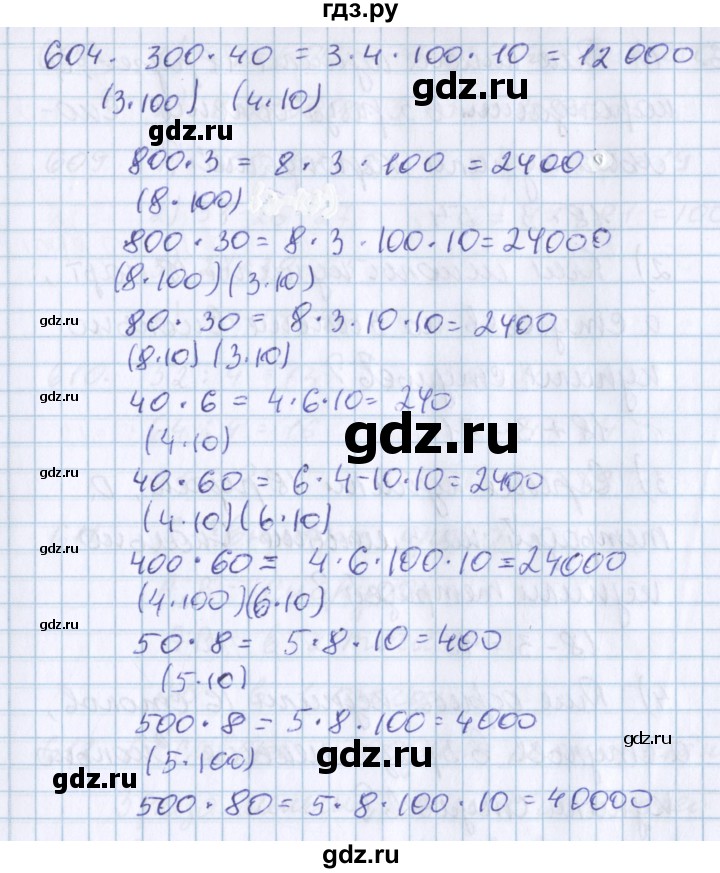 гдз.ру
604. 300 · 40 = 3 · 4 · 100 · 10 = 12 000
(3·100) (4·10)
gdz.ru
gdz.ru
800 · 3 = 8 · 3 · 100 = 2400
(8 · 100)
800 · 30 = 8 · 3 · 100 · 10 = 24000
(8·100)(3·10)
gdz.ru
80 · 30 = 8·3·10·10 = 2400
(8·10) (3·10)
gdz.ru
40 · 6 = 4·6·10 = 240
(4·10)
gdz.ru
gdz.ru
40 · 60 = 6·4-10·10 = 2400
(4·10)(6·10)
gdz.ru
400 · 60 = 4·6·100·10 = 24000
(4·100)(6·10)
gdz.ru
50 · 8 = 5·8·10 = 400
(5·10)
500 · 8 = 5·8·100 = 4000
gdz.ru
(5·100)
gdz.ru
gdz.ru
500 · 80 = 5·8·100·10 = 40000
gdz.ru